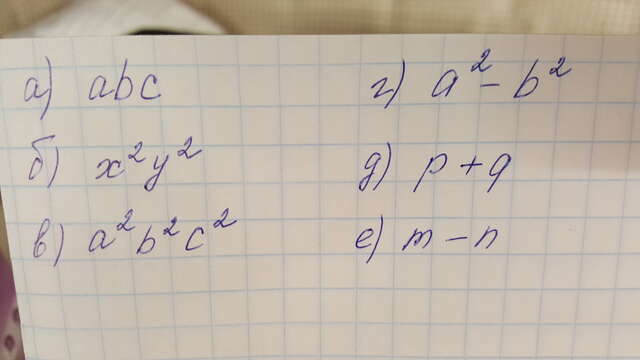 а) abc
б) x²y²
в) a²b²c²
г) a² - b²
д) p + q
е) m - n